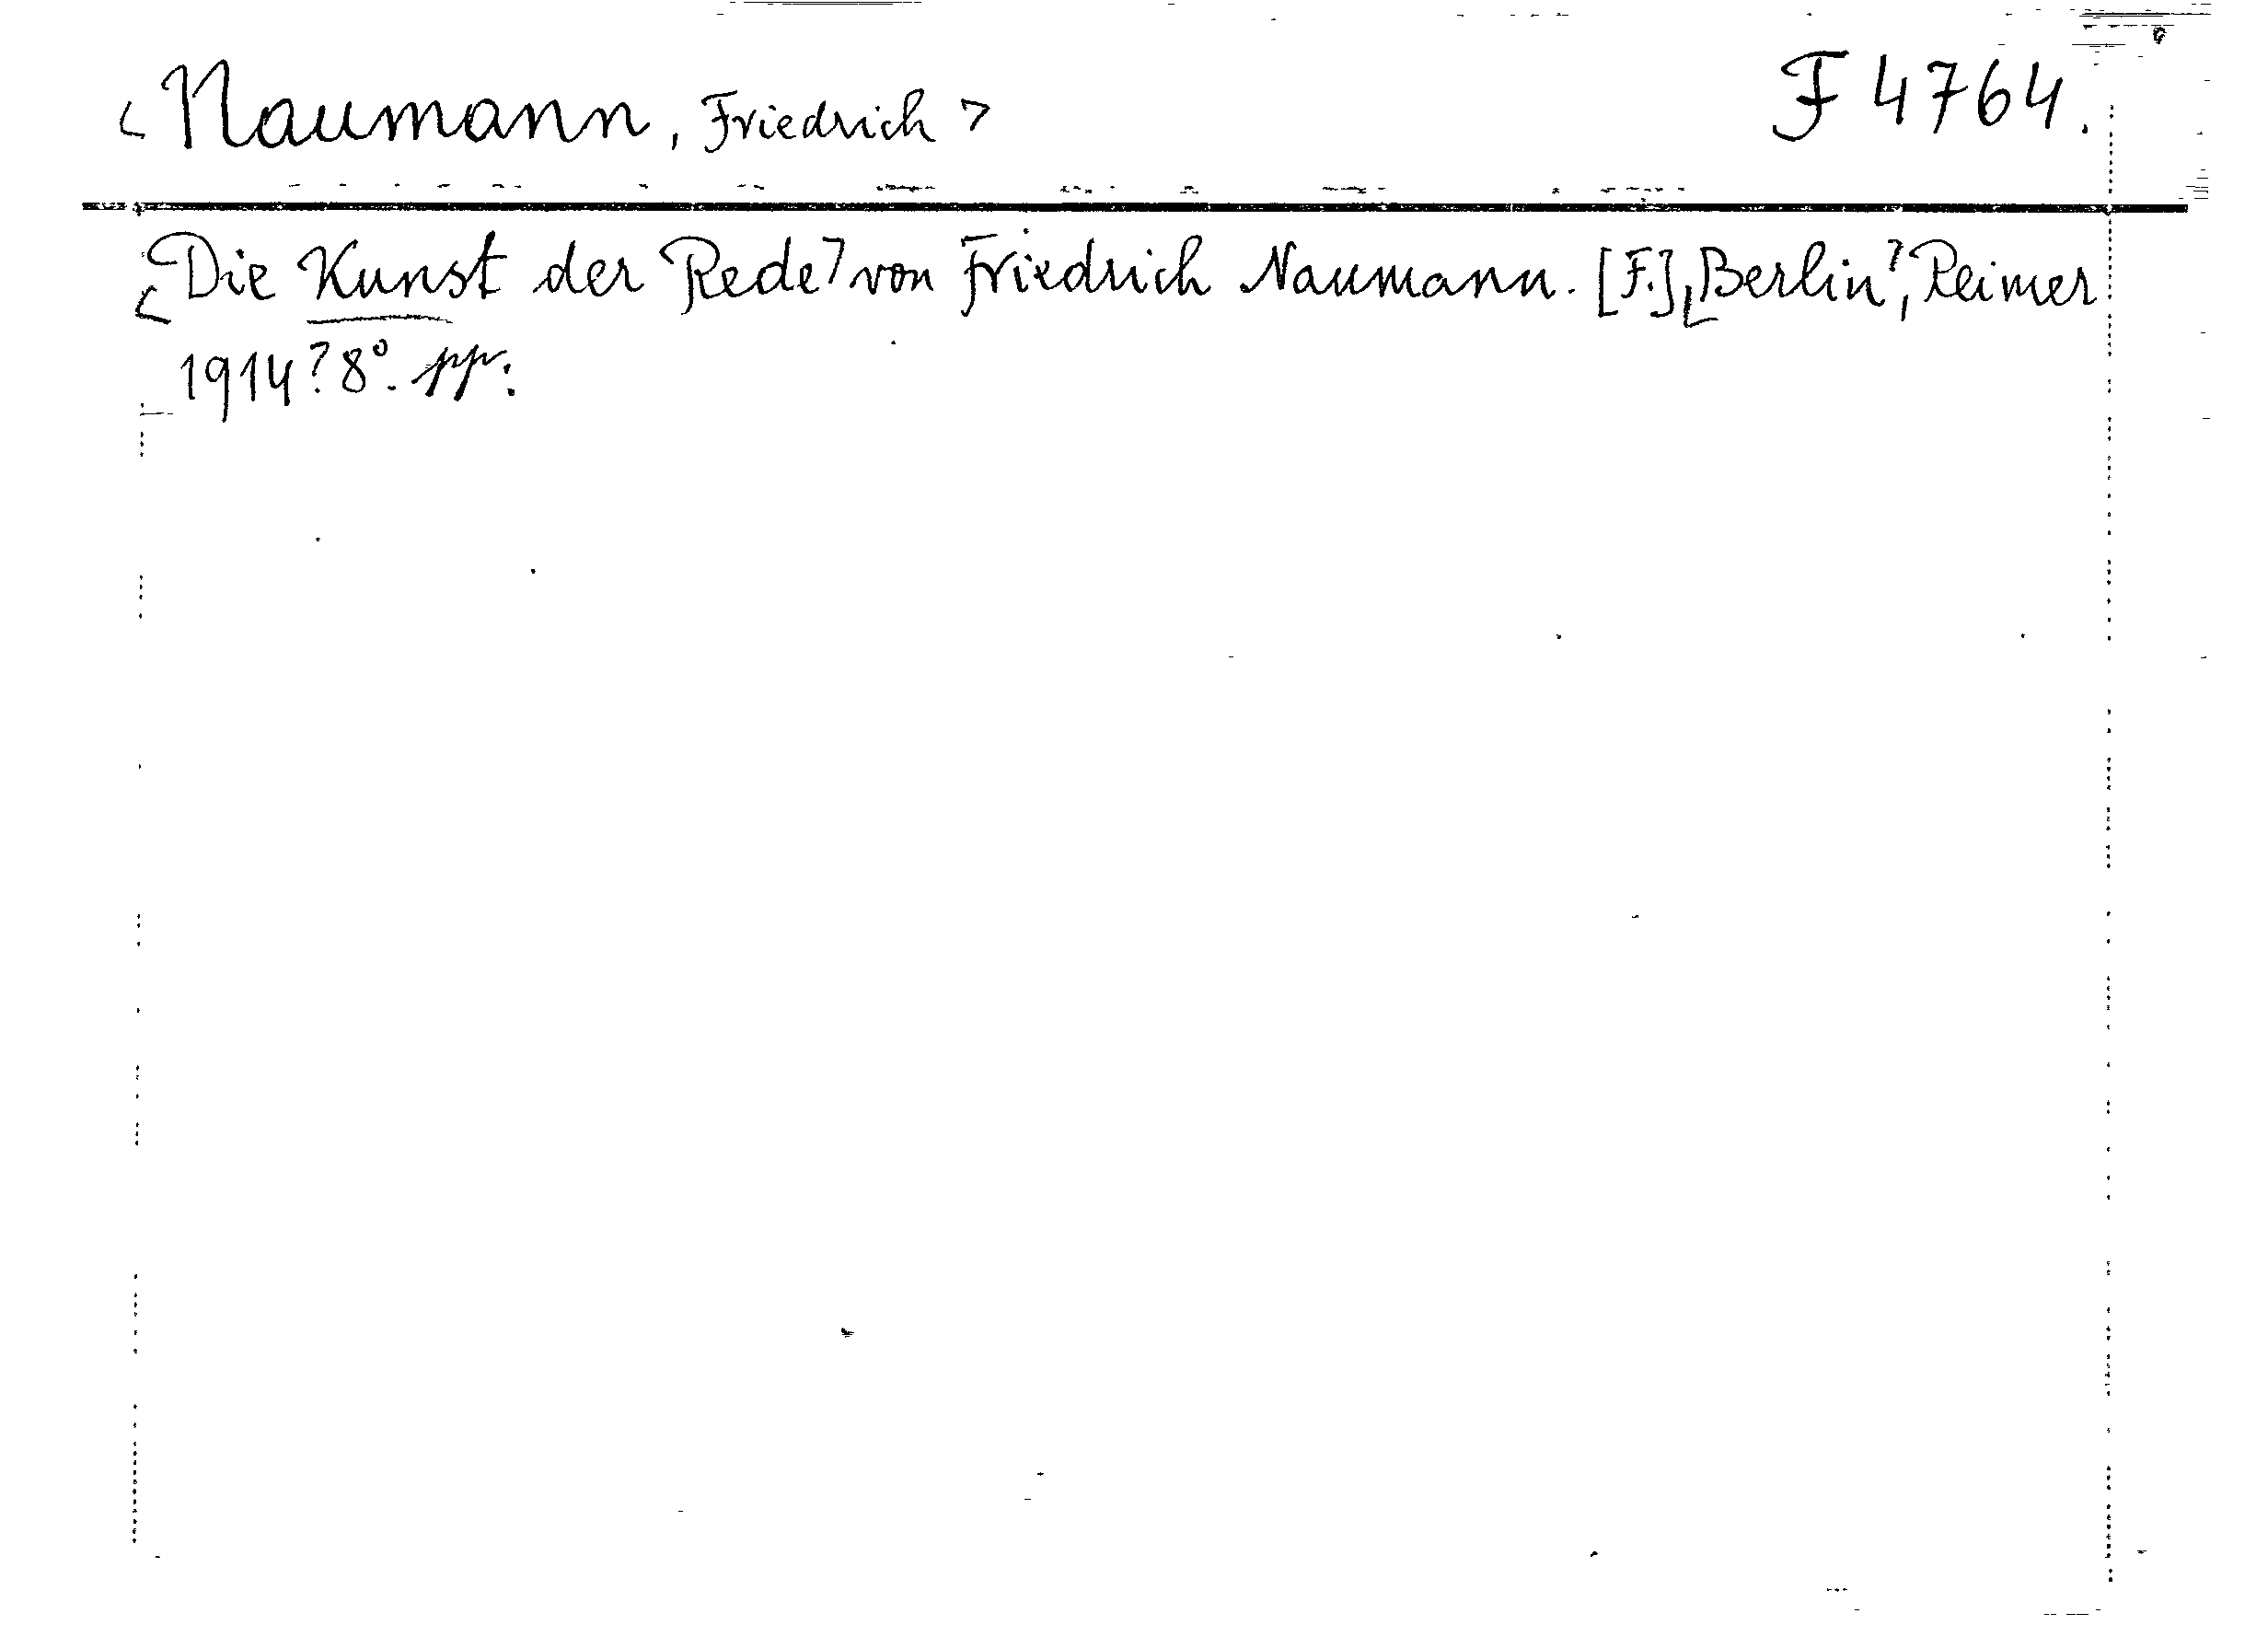 < Naumann, Friedrich > F 4764.
<Die Kunst der Rede> von Friedrich Naumann. [F.] <Berlin>, Reimer
1914> 8°. pp.